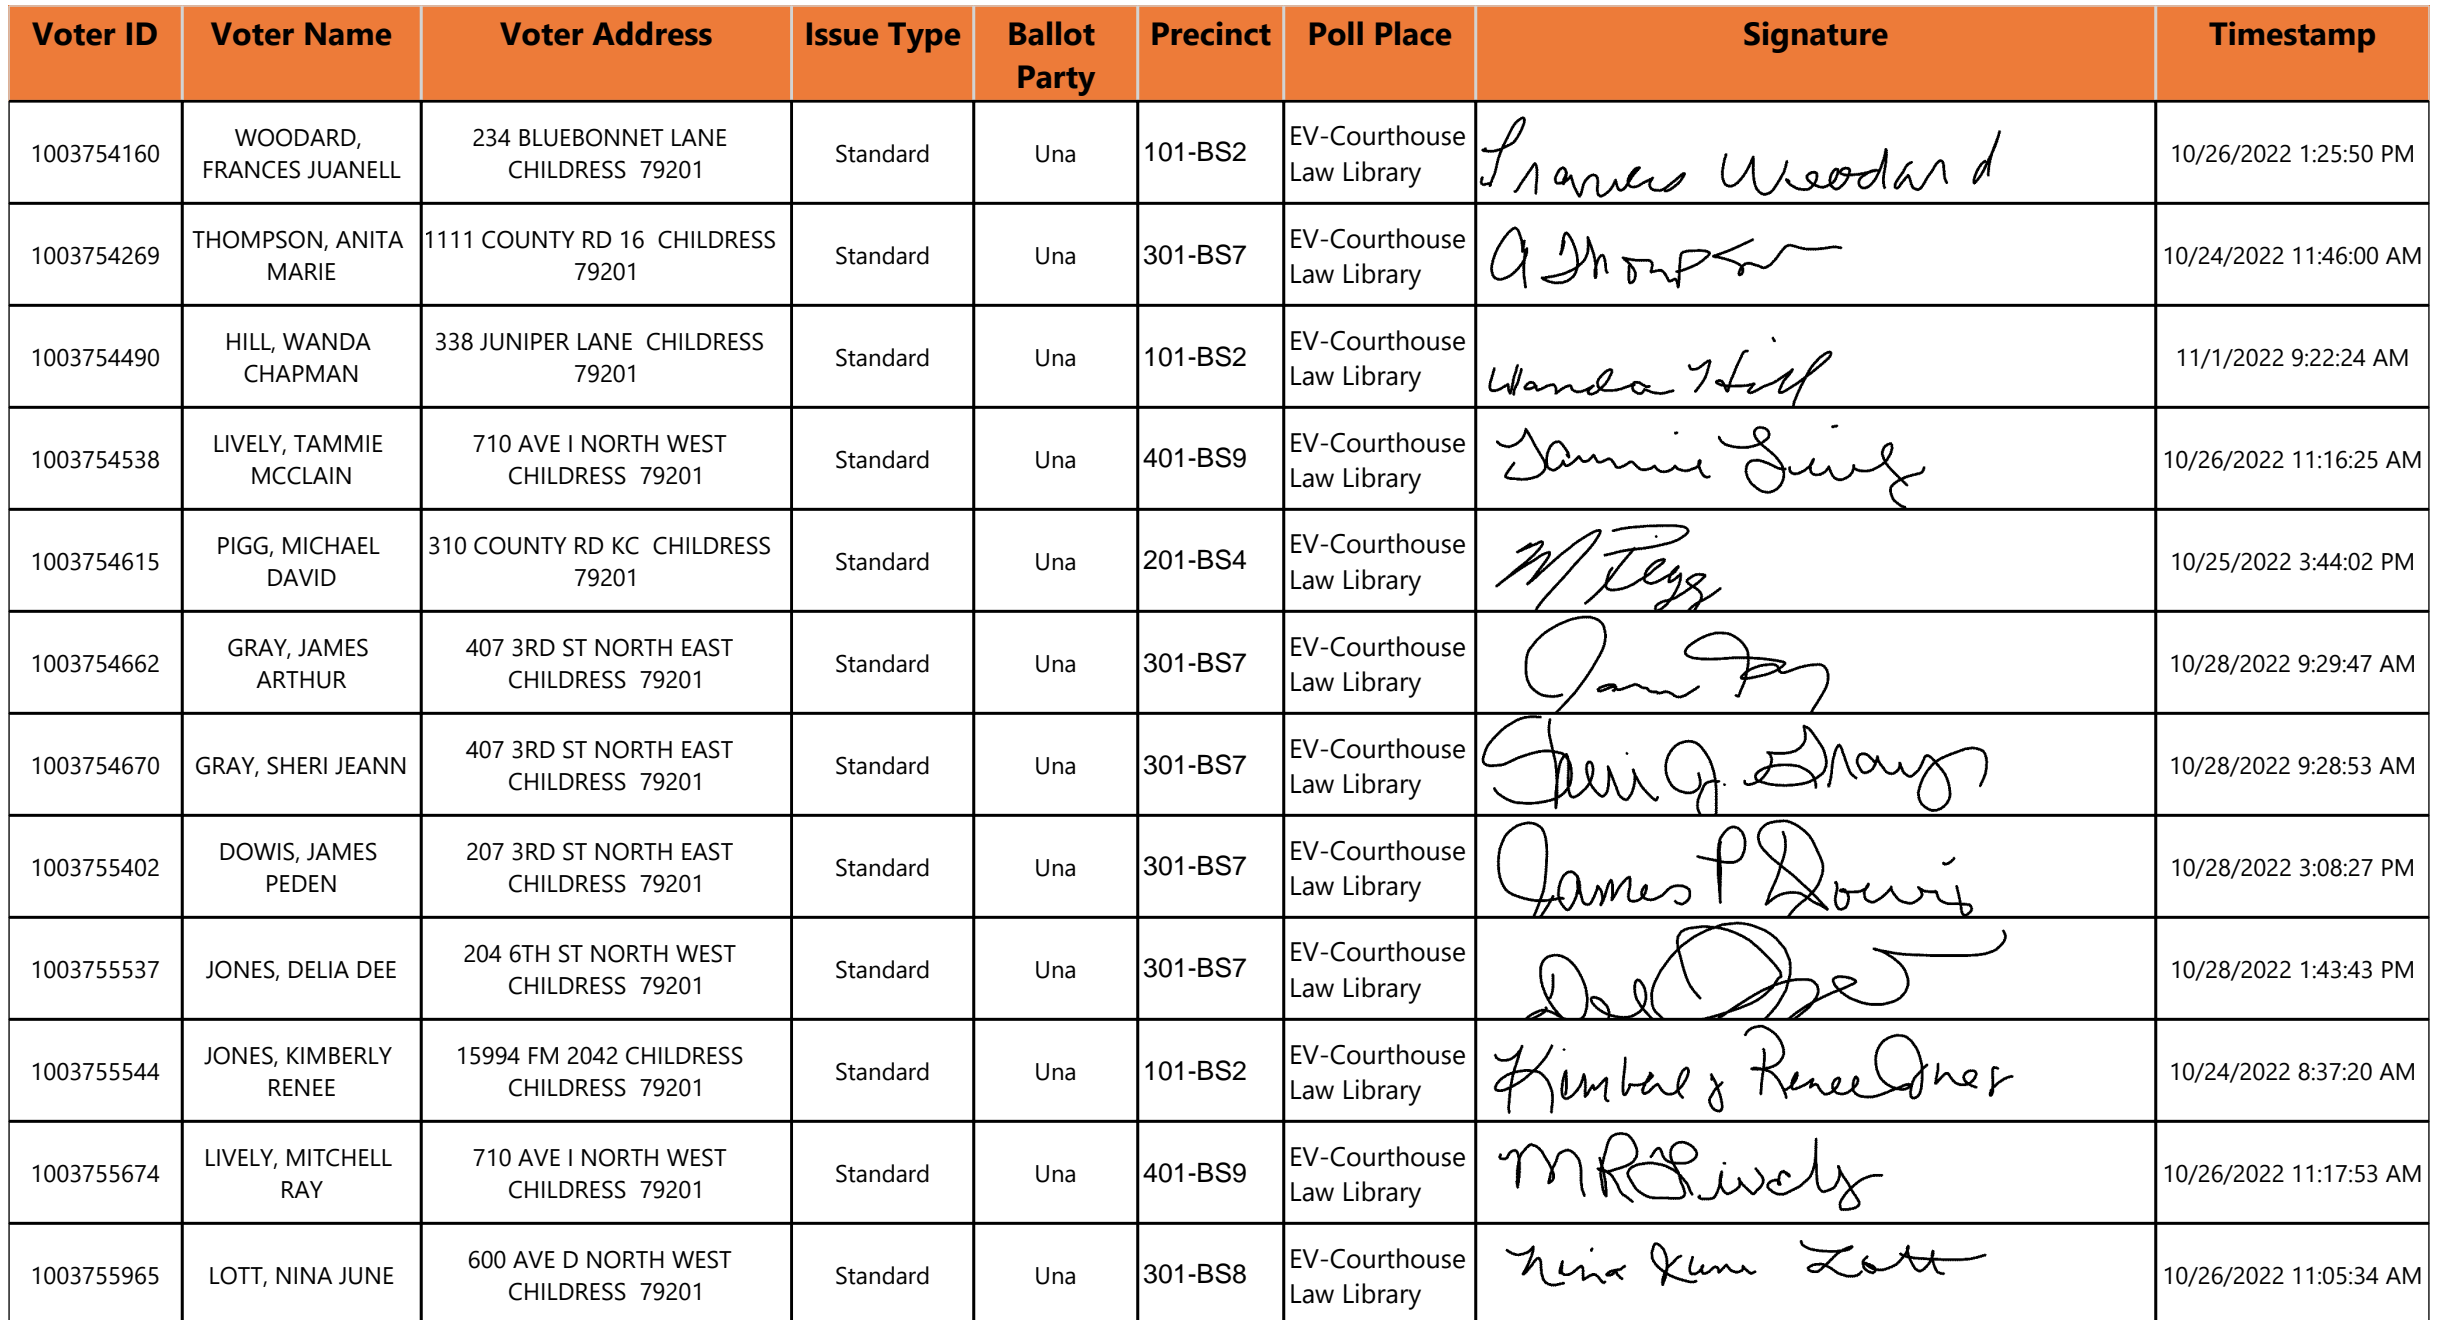 Voter ID Voter Name Voter Address Issue Type Ballot Party Precinct Poll Place Signature Timestamp
1003754160 WOODARD, FRANCES JUANELL 234 BLUEBONNET LANE CHILDRESS 79201 Standard Una 101-BS2 EV-Courthouse Law Library Frances Woodard 10/26/2022 1:25:50 PM
1003754269 THOMPSON, ANITA MARIE 1111 COUNTY RD 16 CHILDRESS 79201 Standard Una 301-BS7 EV-Courthouse Law Library A Thompson 10/24/2022 11:46:00 AM
1003754490 HILL, WANDA CHAPMAN 338 JUNIPER LANE CHILDRESS 79201 Standard Una 101-BS2 EV-Courthouse Law Library Wanda Hill 11/1/2022 9:22:24 AM
1003754538 LIVELY, TAMMIE MCCLAIN 710 AVE I NORTH WEST CHILDRESS 79201 Standard Una 401-BS9 EV-Courthouse Law Library Tammie Lively 10/26/2022 11:16:25 AM
1003754615 PIGG, MICHAEL DAVID 310 COUNTY RD KC CHILDRESS 79201 Standard Una 201-BS4 EV-Courthouse Law Library M Pigg 10/25/2022 3:44:02 PM
1003754662 GRAY, JAMES ARTHUR 407 3RD ST NORTH EAST CHILDRESS 79201 Standard Una 301-BS7 EV-Courthouse Law Library 10/28/2022 9:29:47 AM
1003754670 GRAY, SHERI JEANN 407 3RD ST NORTH EAST CHILDRESS 79201 Standard Una 301-BS7 EV-Courthouse Law Library Sheri J. Gray 10/28/2022 9:28:53 AM
1003755402 DOWIS, JAMES PEDEN 207 3RD ST NORTH EAST CHILDRESS 79201 Standard Una 301-BS7 EV-Courthouse Law Library James P Dowis 10/28/2022 3:08:27 PM
1003755537 JONES, DELIA DEE 204 6TH ST NORTH WEST CHILDRESS 79201 Standard Una 301-BS7 EV-Courthouse Law Library 10/28/2022 1:43:43 PM
1003755544 JONES, KIMBERLY RENEE 15994 FM 2042 CHILDRESS CHILDRESS 79201 Standard Una 101-BS2 EV-Courthouse Law Library Kimberly Renee Jones 10/24/2022 8:37:20 AM
1003755674 LIVELY, MITCHELL RAY 710 AVE I NORTH WEST CHILDRESS 79201 Standard Una 401-BS9 EV-Courthouse Law Library M R Lively 10/26/2022 11:17:53 AM
1003755965 LOTT, NINA JUNE 600 AVE D NORTH WEST CHILDRESS 79201 Standard Una 301-BS8 EV-Courthouse Law Library Nina June Lott 10/26/2022 11:05:34 AM